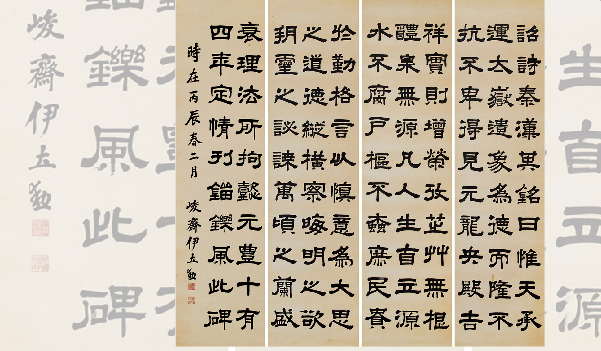 詔詩秦漢其銘曰惟天承
運太嶽遺象為德而隆不
抗不卑得見元龍央殿告
祥實則增榮攷芝艸無根
醴泉無源凡人生自立源
水不腐戶樞不蠹庶民資
於勤格言以慎意為大思
之道德縱橫察晦明之欲
朔靈之談諫萬頃之蘭盛
衰理法所拘懿元豊十有
四年定情刊錙鑠風此碑
時在丙辰春二月 峻齋伊立勳
生自立源
鑠風此碑
峻齋伊立勳